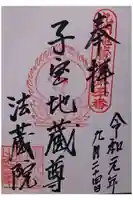 奉拝
令和元年
九月二十四日
子安地蔵尊
法蔵院